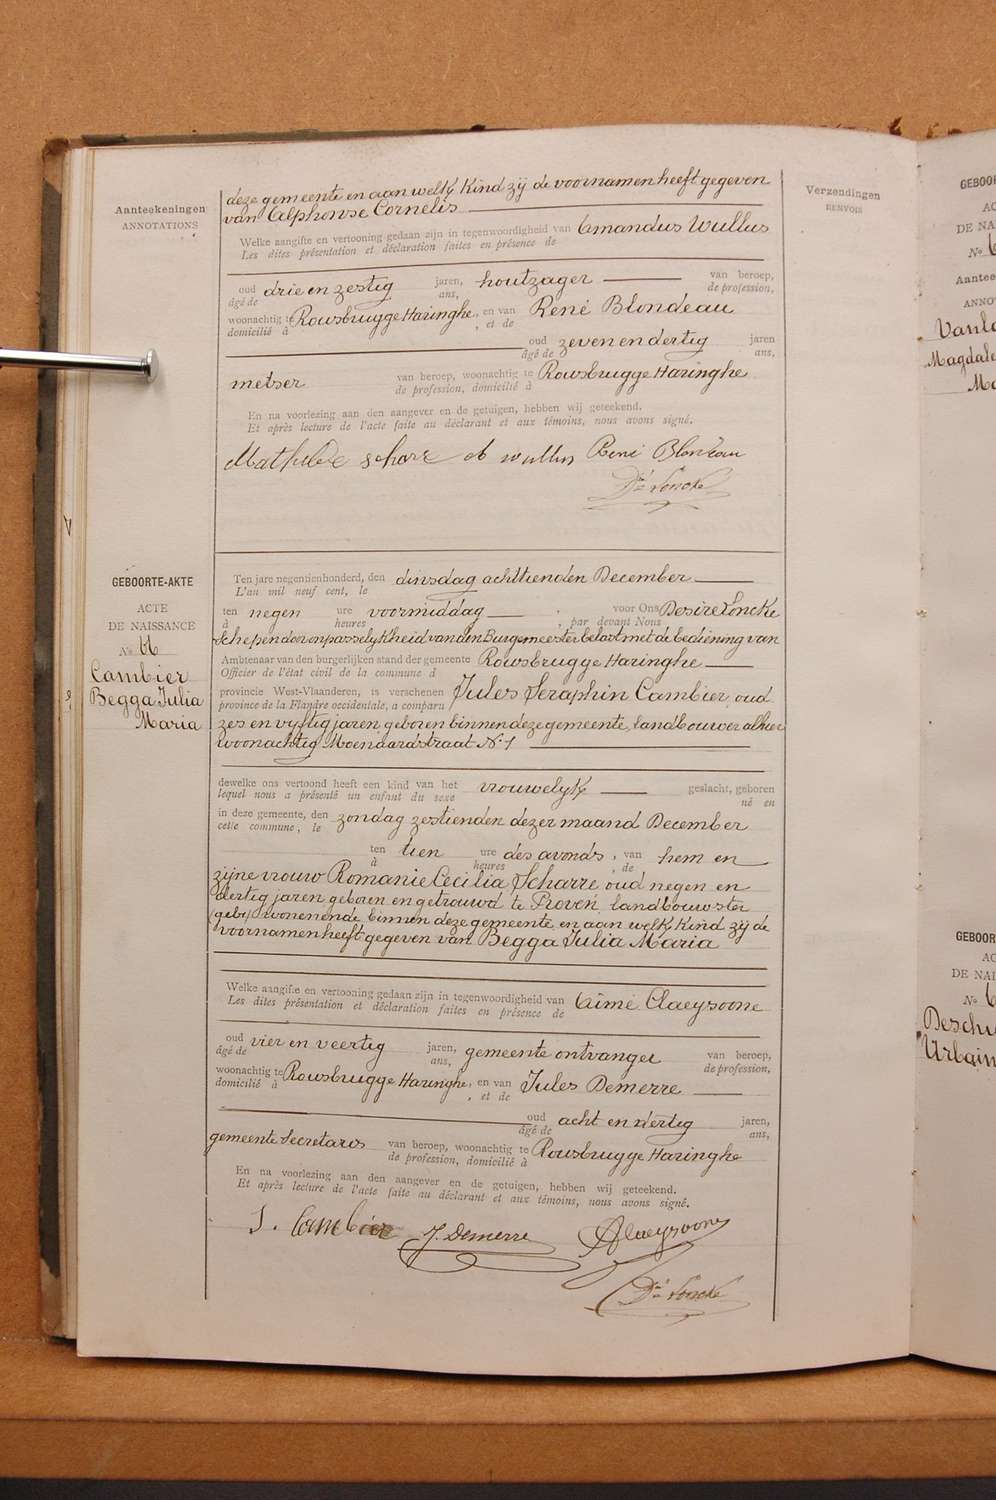 deze gemeente en aan welk Kind zij de voornamen heeft gegeven
van Alphonse Cornelis
Aanteekeningen
ANNOTATIONS
Verzendingen
RENVOIS
Welke aangifte en vertooning gedaan zijn in tegenwoordigheid van Amandus Wullus
Les dites présentation et déclaration faites en présence de
oud drie en zestig jaren, houtzager van beroep,
âgé de ans, de profession,
woonachtig te Rousbrugge Haringhe, en van René Blondeau
domicilié à , et de
oud zeven en dertig jaren
âgé de ans,
metser van beroep, woonachtig te Rousbrugge Haringhe
de profession, domicilié à
En na voorlezing aan den aangever en de getuigen, hebben wij geteekend.
Et après lecture de l'acte faite au déclarant et aux témoins, nous avons signé.
Mathilde René Blondeau
Dré Loncke
GEBOORTE-AKTE
ACTE
DE NAISSANCE
No 66
Cambier
Begga Julia
Maria
Ten jare negentienhonderd, den dinsdag achttienden December
L'an mil neuf cent, le
ten negen ure voormiddag , voor Ons Desiré Loncke
à heures , par devant Nous
Schepen door onpasselykheid van den Burgemeester belast met de bediening van
Ambtenaar van den burgerlijken stand der gemeente Rousbrugge Haringhe
Officier de l'état civil de la commune d
provincie West-Vlaanderen, is verschenen Jules Seraphin Cambier, oud
province de la Flandre occidentale, a comparu
zes en vyftig jaren, geboren binnen deze gemeente, landbouwer alhier
woonachtig Moenaardstraat No 1
dewelke ons vertoond heeft een kind van het vrouwelyk geslacht, geboren
lequel nous a présenté un enfant du sexe né en
in deze gemeente, den zondag zestienden dezer maand December
cette commune, le
ten tien ure des avonds, van hem en
à heures , de
zijne vrouw Romanie Cecilia Scharre oud negen en
dertig jaren, geboren en getrouwd te Proven, landbouwster
wonenende binnen deze gemeente, en aan welk Kind zij de
voornamen heeft gegeven van Begga Julia Maria
Welke aangifte en vertooning gedaan zijn in tegenwoordigheid van Aimé Claeysoone
Les dites présentation et déclaration faites en présence de
oud vier en veertig jaren, gemeente ontvanger van beroep,
âgé de ans, de profession,
woonachtig te Rousbrugge Haringhe, en van Jules Demerre
domicilié à , et de
oud acht en dertig jaren,
âgé de ans,
gemeente Secretaris van beroep, woonachtig te Rousbrugge Haringhe
de profession, domicilié à
En na voorlezing aan den aangever en de getuigen, hebben wij geteekend.
Et après lecture de l'acte faite au déclarant et aux témoins, nous avons signé.
J. Cambier J. Demerre A Claeysoone
Dré Loncke